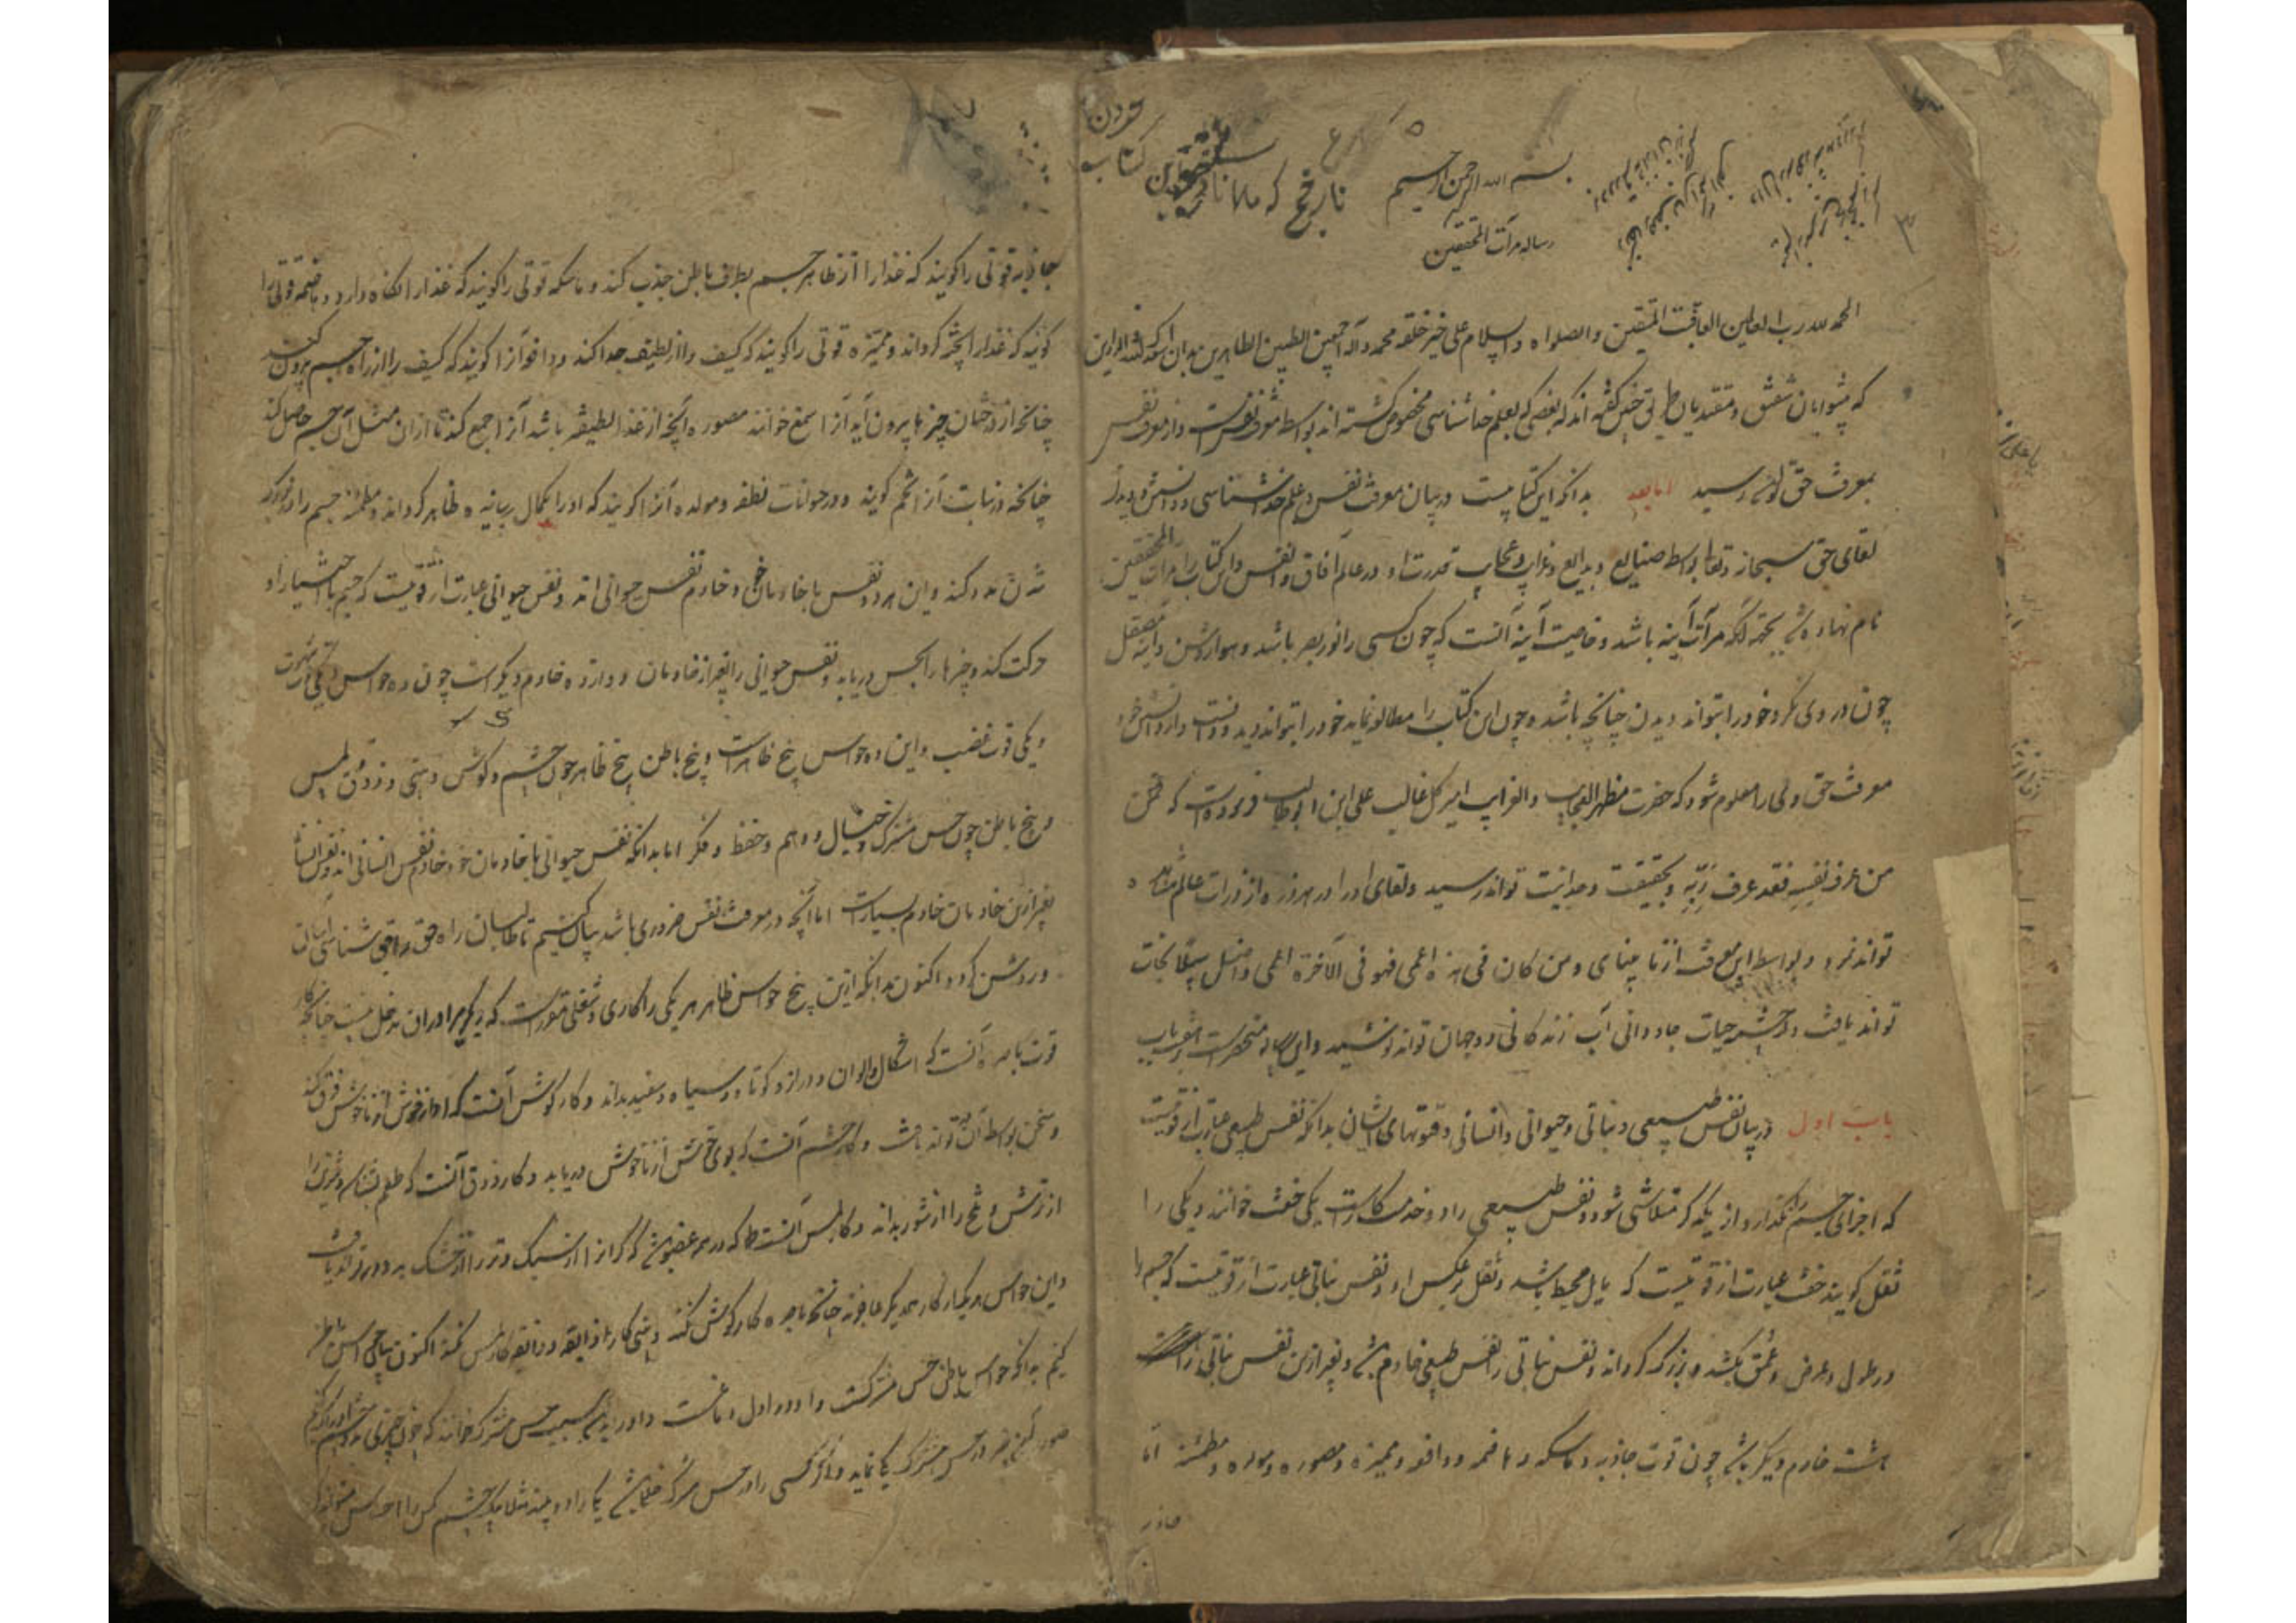 بسم الله الرحمن الرحیم
رساله مرآت المحققین
الحمد لله رب العالمین العاقبت المتقین والصلواه والسلام علی خیر خلقه محمد و آله اجمعین الطیبین الطاهرین بدان
که پیشوایان و مقتدیان طریق گفته اند که بعضی که بعلم خداشناسی مخصوص گشته اند بواسطه معرفت نفس است و از معرفت نفس
بمعرفت حق تعالی رسید اما بعد بدانکه این کتابیست در بیان معرفت نفس و علم خداشناسی و دانستن و دیدن
لقای حق سبحانه و تعالی بواسطه صنایع و بدایع و غرایب و عجایب قدرت او در عالم آفاق و انفس و این کتاب را مرآت المحققین
نام نهاده شد بجهة آنکه مرآت آینه باشد و خاصیت آینه آنست که چون کسی را نور بصر باشد و هوا روشن و آینه مصقل
چون در وی نگرد خود را بتواند دیدن چنانچه باشد و چون این کتاب را مطالعه نماید خود را بتواند دید و دانست و از دانش خود
معرفت حق ویرا معلوم شود که حضرت مظهر العجایب و الغرایب امیر کل غالب علی ابن ابوطالب فرموده است که
من عرف نفسه فقد عرف ربه و بحقیقت وحدانیت تواند رسید و لقای او را در هر ذره از ذرات عالم مشاهده
تواند نمود و بواسطه این معرفت از نابینای و من کان فی هذه اعمی فهو فی الآخرة اعمی و اضل سبیلا نجات
تواند یافت و از چشمه حیات جاودانی آب زندکانی دو جهان تواند نوشید و این رساله منحصر است بهفت باب
باب اول در بیان نفس طبیعی و نباتی و حیوانی و انسانی و قوتهای ایشان بدانکه نفس طبیعی عبارت از قوتیست
که اجزای جسم را نگذارد از یکدیگر متلاشی شود و نفس طبیعی را دو خدمتکار است یکی خفت خوانند و یکی را
ثقل گویند خفت عبارت از قوتیست که مایل محیط باشد و ثقل بر عکس او و نفس نباتی عبارت از قوتیست که جسم را
در طول و عرض و عمق بکشد و بزرک گرداند و نفس نباتی را نفس طبیعی خادم باشد و بغیر ازین نفس نباتی را
هشت خادم دیگر باشد چون قوت جاذبه و ماسکه و هاضمه و دافعه و ممیزه و مصوره و مولده و مطمئنه اما
جاذبه
جاذبه قوتی را گویند که غذا را از ظاهر جسم بطرف باطن جذب کند و ماسکه قوتی را گویند که غذا را نگاه دارد و هاضمه قوتی را
گویند که غذا را پخته گرداند و ممیزه قوتی را گویند که کثیف را از لطیف جدا کند و دافعه آنرا گویند که کثیف را از راه جسم بیرون کند
چنانچه از درختان چیزها بیرون آید آنرا صمغ خوانند مصوره آنچه از غذا لطیفه باشد آنرا جمع کند تا از آن مثل آن جسم حاصل کند
چنانچه در نبات آنرا تخم گویند و در حیوانات نطفه و مولده آنرا گویند که او را بکمال رسانیده ظاهر گرداند و مطمئنه جسم را در
شدن مدد کند و این هر دو نفس با خادمان خود خادم نفس حیوانی اند و نفس حیوانی عبارت از قوتیست که جسم باختیار او
حرکت کند و چیزها را بحس دریابد و نفس حیوانی را بغیر از خادمان دوازده خادم دیگر است چون ده حواس و یکی قوت شهوت
و یکی قوت غضب و این ده حواس پنج ظاهر است و پنج باطن پنج ظاهر چون چشم و گوش و بینی و ذوق و لمس
و پنج باطن چون حس مشترک و خیال و وهم و حفظ و فکر اما بدانکه نفس حیوانی با خادمان خود خادم نفس انسانی اند و نفس انسانی
بغیر ازین خادمان خادم بسیار است اما آنچه در معرفت نفس ضروری باشد بیان کنیم تا طالبان راه حق را حق شناسی آسان
و روشن گردد اکنون بدانکه ازین پنج حواس ظاهر هر یکی را کاری و شغلی مقرر است که دیگری را در آن مدخل نیست چنانچه کار
قوت باصره آنست که اشکال و الوان و دراز و کوتاه و سیاه و سفید بداند و کار گوش آنست که آواز خوش از ناخوش فرق کند
و سخن بواسطه آن تواند یافت و کار شم آنست که بوی خوش از ناخوش دریابد و کار ذوق آنست که طعم بشناسد و شیرین را
از ترش و تلخ را از شور بداند و کار لمس آنست که در همه عضو باشد که گرانرا از سبک و تر را از خشک بدو در تواند یافت
و این حواس هر یک از کار همدیگر عاجزند چنانچه باصره کار گوش نکند و بینی کار ذایقه و ذایقه کار لمس نکند اکنون بیان حواس باطن
کنیم بدانکه حواس باطن حس مشترکست و او در اول دماغست و او را بدین سبب حس مشترک خوانند که چون چیزی بدو چشم